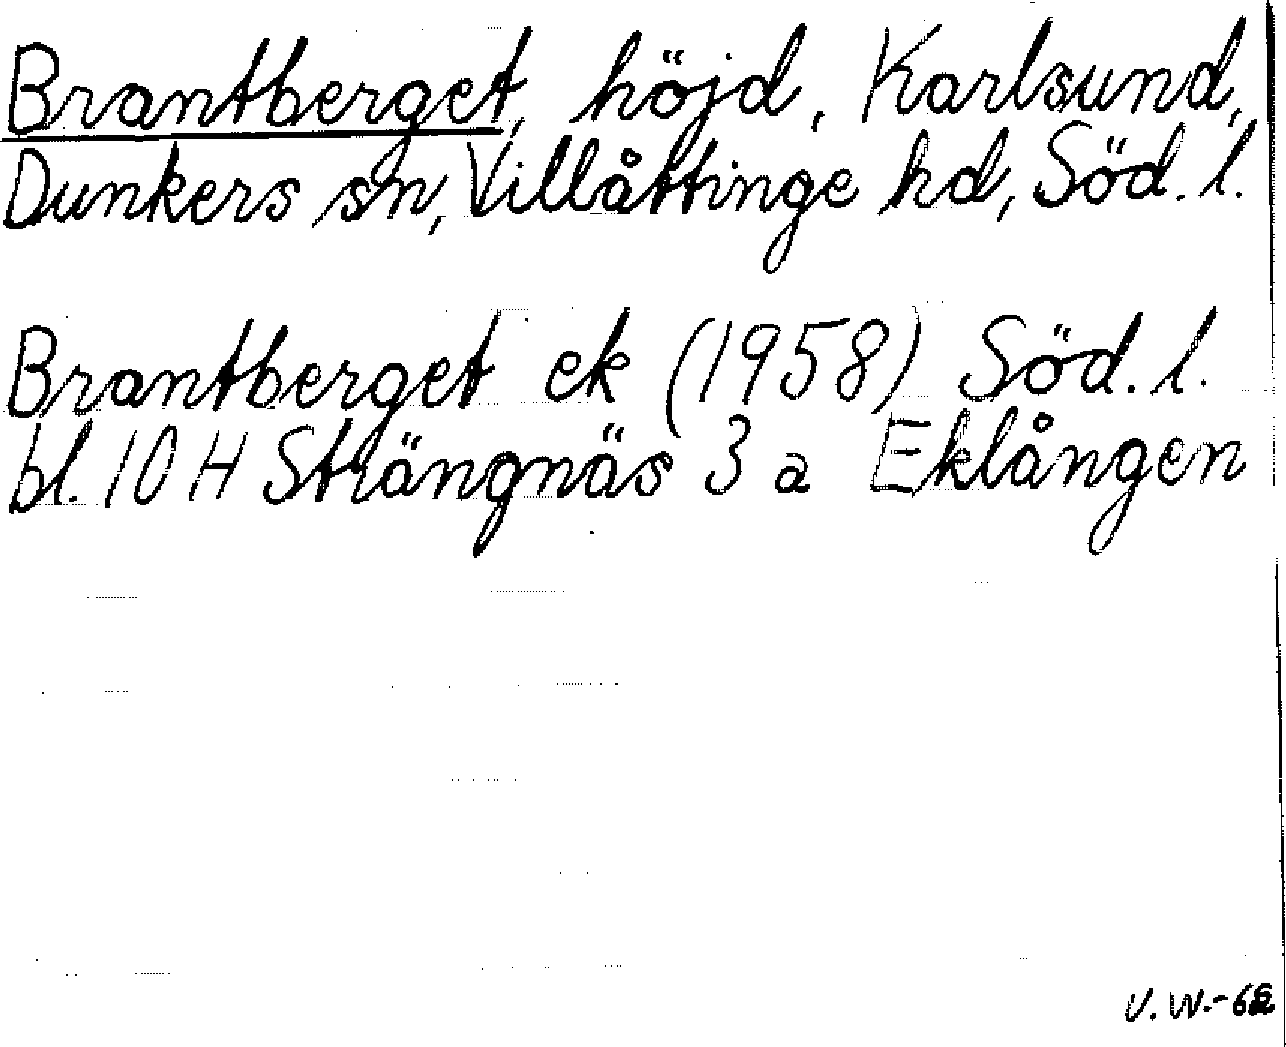 Brantberget, höjd, Karlsund,
Dunkers sn, Villåttinge hd, Söd. l.
Brantberget ek (1958) Söd. l.
bl. 10 H Strängnäs 3 a Eklången
V. W.-62